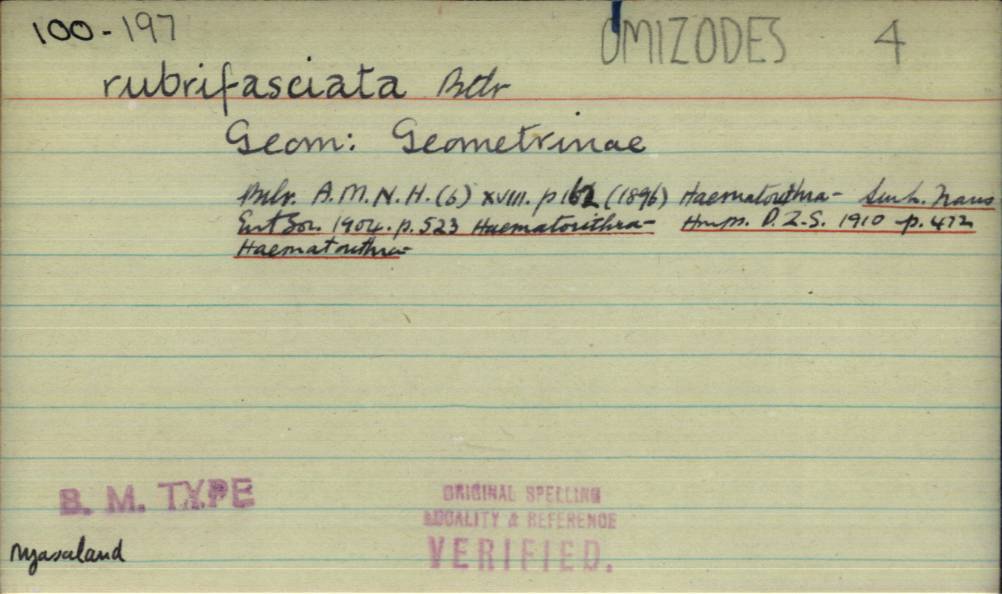 100-197 OMIZODES 4
rubrifasciata Btlr
Geom: Geometrinae
Btlr. A.M.N.H. (6) XVIII. p162 (1896) Haematorithra- Swinh. Trans
Ent Soc. 1904. p. 523 Haematorithra- Hmps. P.Z.S. 1910 p. 472
Haematorithra-
B. M. TYPE
ORIGINAL SPELLING
LOCALITY & REFERENCE
VERIFIED.
Nyasaland